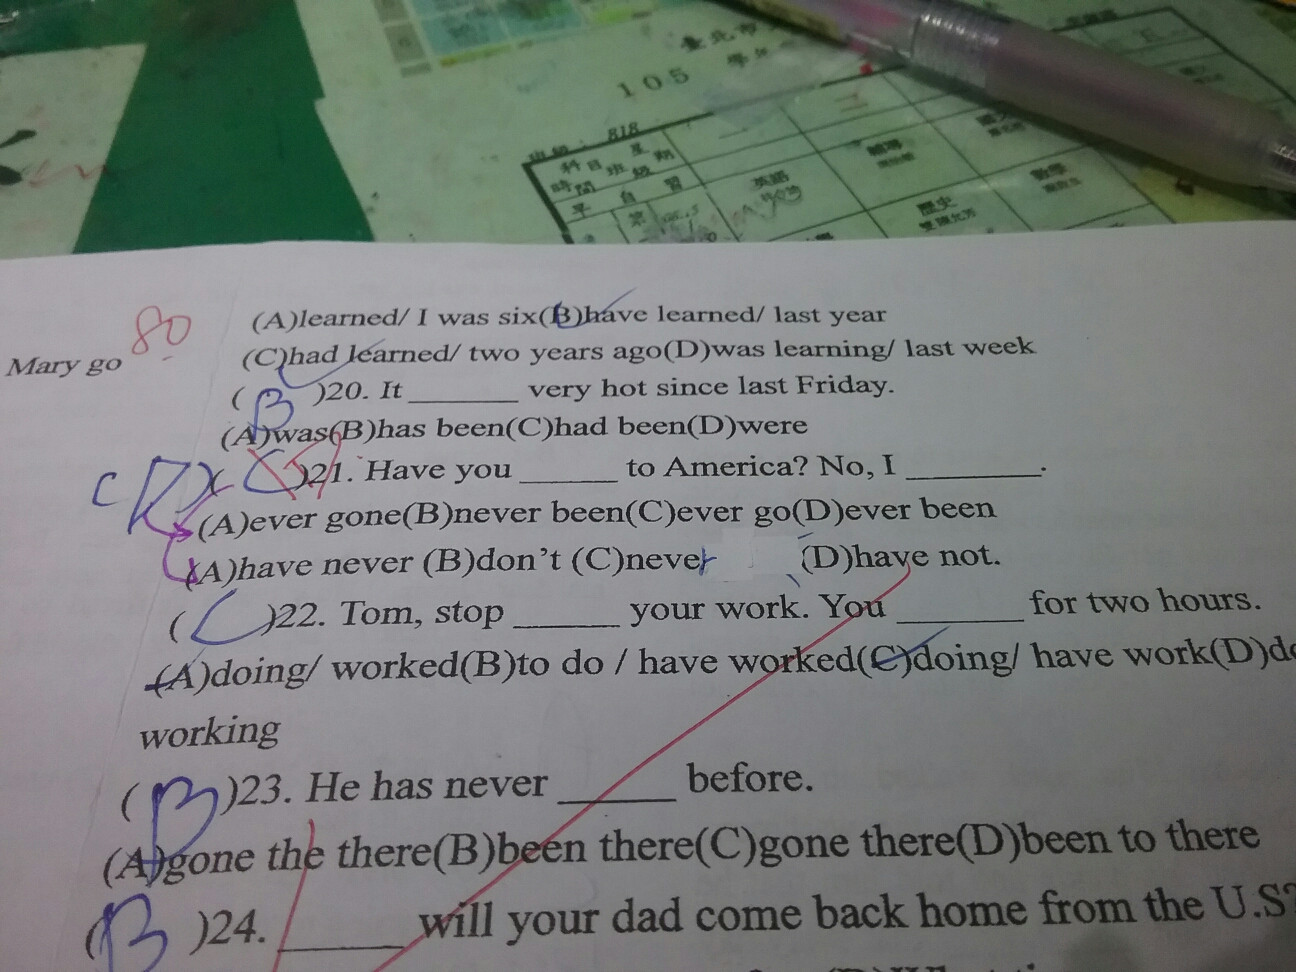 臺北市
105 學年
818
科目 班級 星期
時間
早自習
英語
輔導
數學
歷史
80
Mary go
(A)learned/ I was six(B)have learned/ last year
(C)had learned/ two years ago(D)was learning/ last week
( B )20. It ______ very hot since last Friday.
(A)was(B)has been(C)had been(D)were
C )21. Have you ______ to America? No, I ________.
(A)ever gone(B)never been(C)ever go(D)ever been
(A)have never (B)don't (C)never (D)have not.
( C )22. Tom, stop ______ your work. You ______ for two hours.
(A)doing/ worked(B)to do / have worked(C)doing/ have work(D)do
working
( B )23. He has never ______ before.
(A)gone the there(B)been there(C)gone there(D)been to there
( B )24. ______ will your dad come back home from the U.S?